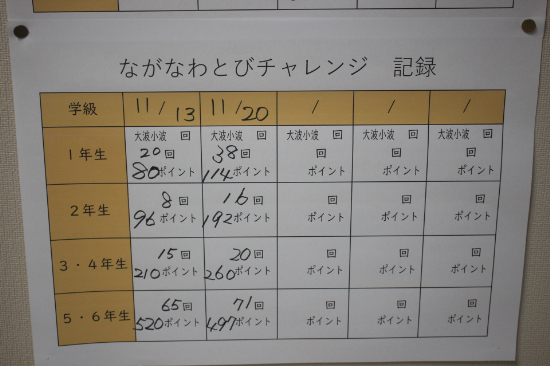 ながなわとびチャレンジ 記録
学級 11/13 11/20 / / /
大波小波 回 大波小波 回 大波小波 回 大波小波 回 大波小波 回
１年生 20回 38回 回 回 回
80ポイント 114ポイント ポイント ポイント ポイント
２年生 8回 16回 回 回 回
96ポイント 192ポイント ポイント ポイント ポイント
３・４年生 15回 20回 回 回 回
210ポイント 260ポイント ポイント ポイント ポイント
５・６年生 65回 71回 回 回 回
520ポイント 497ポイント ポイント ポイント ポイント